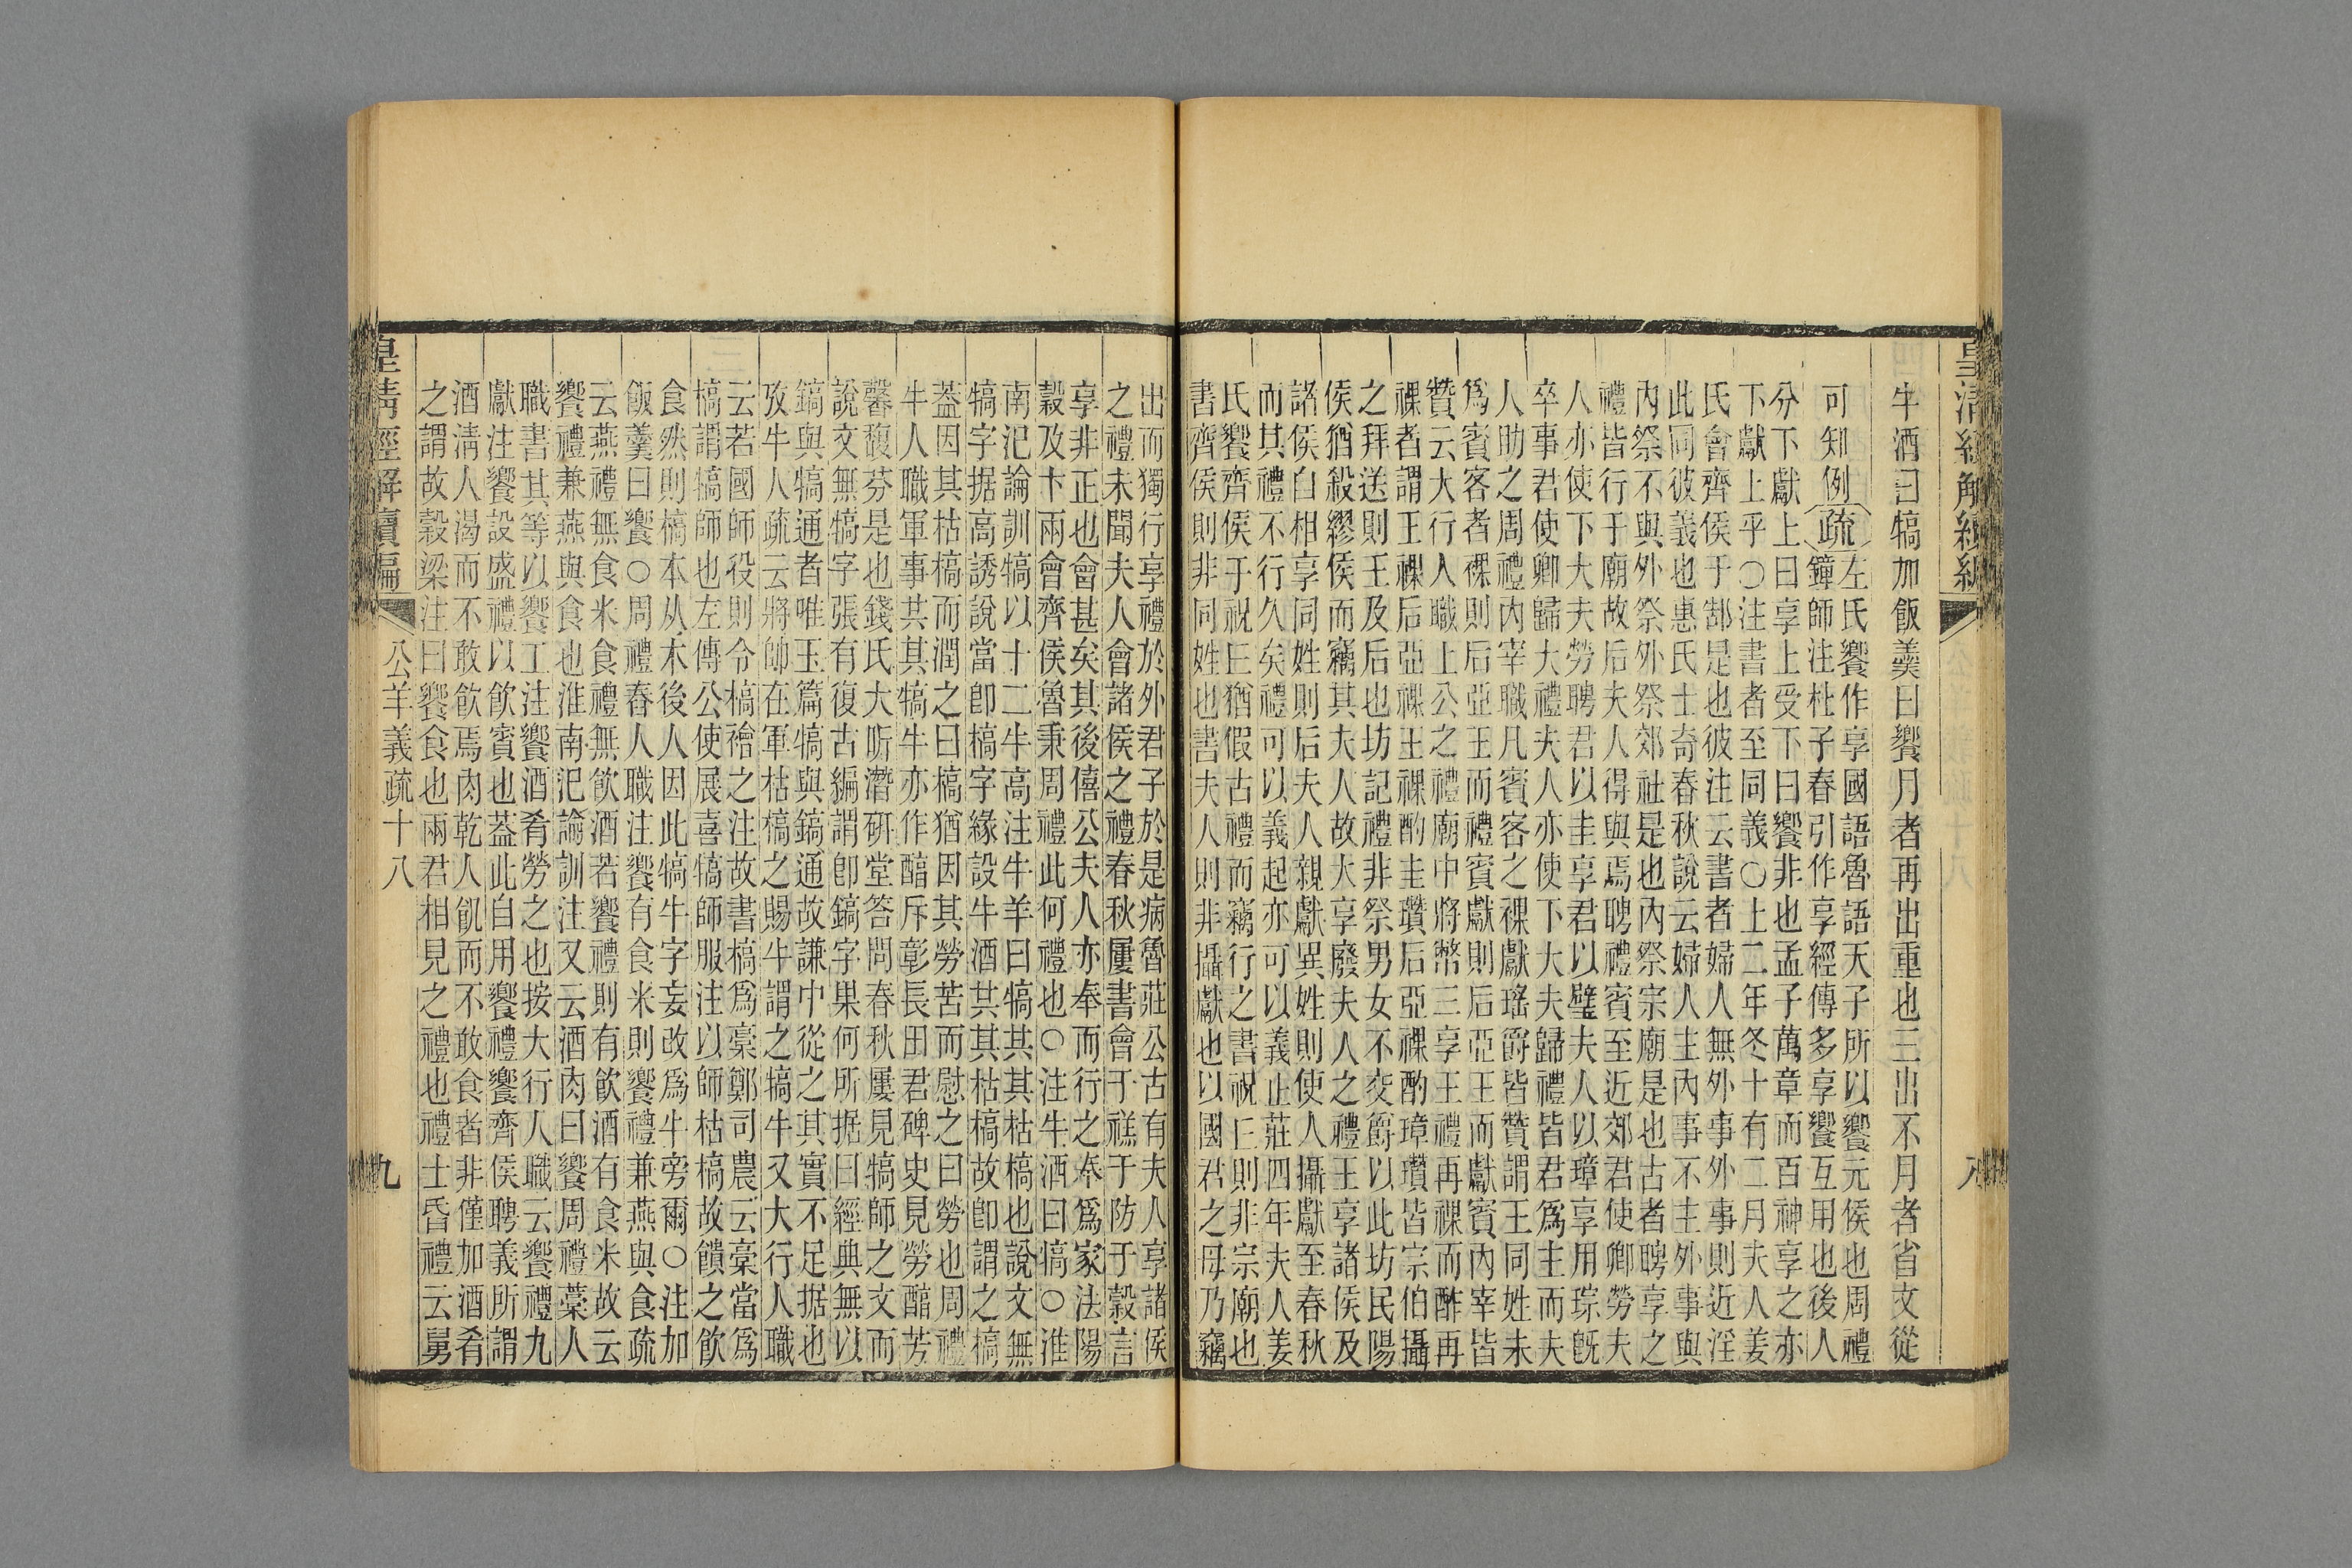 皇清經解續編
八
牛酒曰犒加飯羹曰饗月者再出重也三出不月者省文從
可知例疏
左氏饗作享國語魯語天子所以饗元侯也周禮
鐘師注杜子春引作享經傳多享饗互用也後人
分下獻上曰享上受下曰饗非也孟子萬章而百神享之亦
下獻上乎○注書者至同義○上二年冬十有二月夫人姜
氏會齊侯于郜是也彼注云書者婦人無外事外事則近淫
此同彼義也惠氏士奇春秋說云婦人主內事不主外事與
內祭不與外祭外祭郊社是也內祭宗廟是也古者聘享之
禮皆行于廟故后夫人得與焉聘禮賓至近郊君使卿勞夫
人亦使下大夫勞聘君以圭享君以璧夫人以璋享用琮旣
卒事君使卿歸大禮夫人亦使下大夫歸禮皆君爲主而夫
人助之周禮內宰職凡賓客之祼獻瑤爵皆贊謂王同姓未
爲賓客者祼則后亞王而禮賓獻則后亞王而獻賓內宰皆
贊云大行人職上公之禮廟中將幣三享王禮再祼而酢再
祼者謂王祼后亞祼王祼酌圭瓚后亞祼酌璋瓚皆宗伯攝
之拜送則王及后也坊記禮非祭男女不交爵以此坊民陽
侯猶殺繆侯而竊其夫人故大享廢夫人之禮王享諸侯及
諸侯自相享同姓則后夫人親獻異姓則使人攝獻至春秋
而其禮不行久矣禮可以義起亦可以義止莊四年夫人姜
氏饗齊侯于祝丘猶假古禮而竊行之書祝丘則非宗廟也
書齊侯則非同姓也書夫人則非攝獻也以國君之母乃竊
出而獨行享禮於外君子於是病魯莊公古有夫人享諸侯
之禮未聞夫人會諸侯之禮春秋屢書會于禚于防于穀言
享非正也會甚矣其後僖公夫人亦奉而行之奉爲家法陽
穀及卞兩會齊侯魯秉周禮此何禮也○注牛酒曰犒○淮
南汜論訓犒以十二牛高注牛羊曰犒其其枯槁也說文無
犒字据高誘說當卽槁字緣設牛酒其其枯槁故卽謂之槁
蓋因其枯槁而潤之曰槁猶因其勞苦而慰之曰勞也周禮
牛人職軍事共其犒牛亦作醕斥彰長田君碑史見勞醕芳
馨馥芬是也錢氏大昕潛硏堂答問春秋屢見犒師之文而
說文無犒字張有復古編謂卽鎬字果何所据曰經典無以
鎬與犒通者唯玉篇犒與鎬通故謙中從之其實不足据也
攷牛人疏云將帥在軍枯槁之賜牛謂之犒牛又大行人職
云若國師役則令槁禬之注故書槁爲稾鄭司農云稾當爲
槁謂犒師也左傳公使展喜犒師服注以師枯槁故饋之飮
食然則槁本从木後人因此犒牛字妄改爲牛旁爾○注加
飯羹曰饗○周禮舂人職注饗有食米則饗禮兼燕與食疏
云燕禮無食米食禮無飮酒若饗禮則有飮酒有食米故云
饗禮兼燕與食也淮南汜論訓注又云酒肉曰饗周禮稾人
職書其等以饗工注饗酒肴勞之也按大行人職云饗禮九
獻注饗設盛禮以飮賓也蓋此自用饗禮饗齊侯聘義所謂
酒淸人渴而不敢飮焉肉乾人飢而不敢食者非僅加酒肴
之謂故穀梁注曰饗食也兩君相見之禮也禮士昏禮云舅
皇清經解續編
公羊義疏十八
九